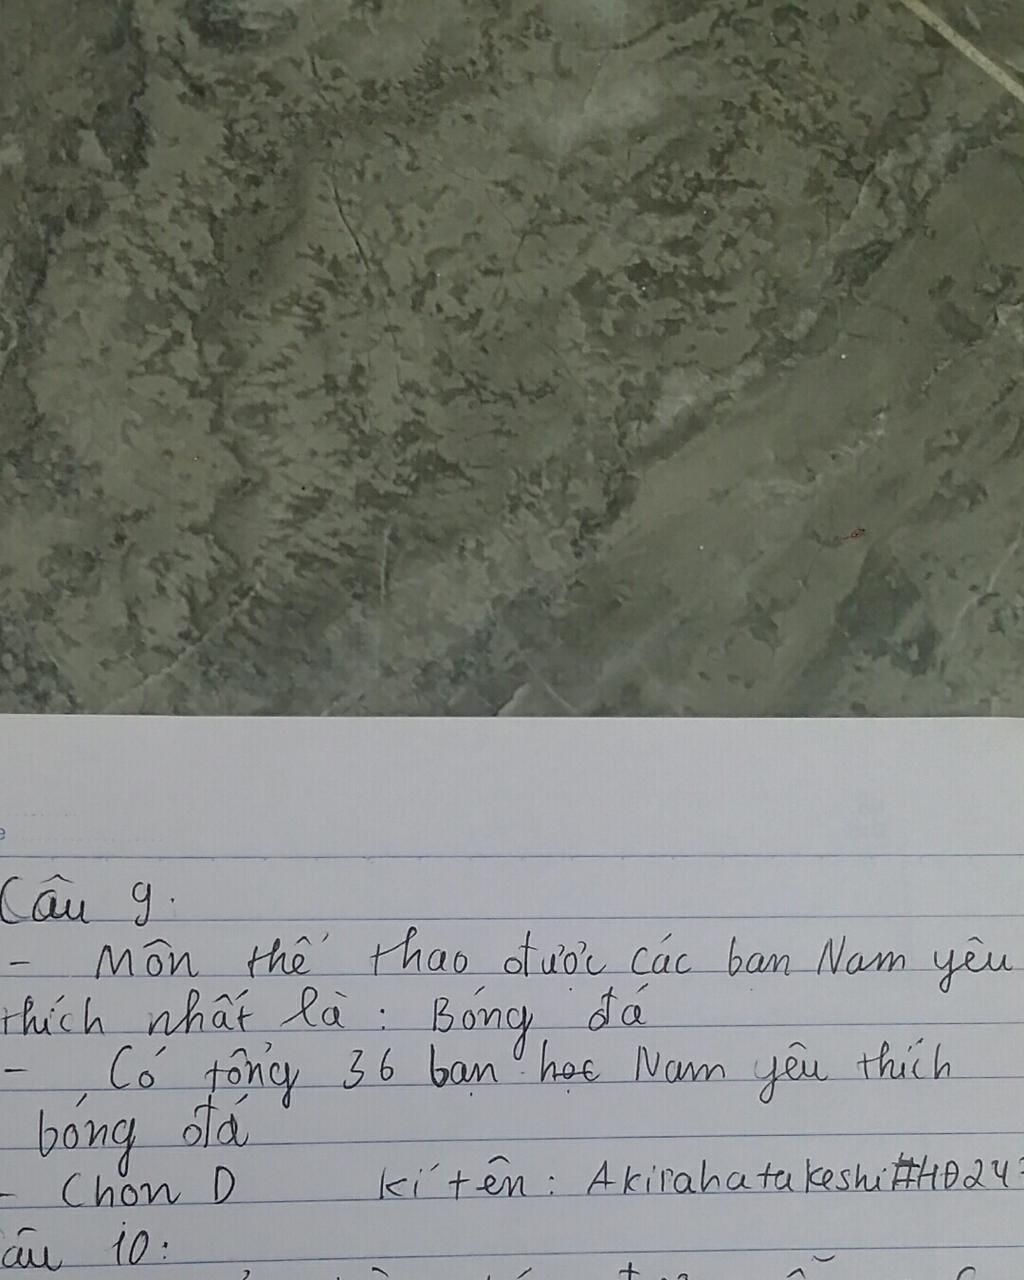 Câu 9.
- Môn thể thao được các bạn Nam yêu
thích nhất là : Bóng đá
- Có tổng 36 bạn học Nam yêu thích
bóng đá
- Chọn D kí tên : Akirahatakeshi
âu 10 :